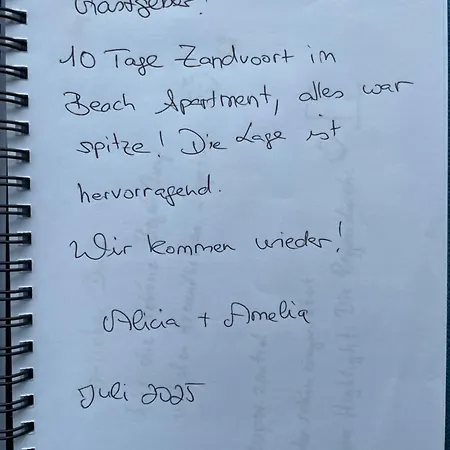 Gastgeber!
10 Tage Zandvoort im
Beach Apartment, alles war
spitze! Die Lage ist
hervorragend.
Wir kommen wieder!
Alicia + Amelia
Juli 2025